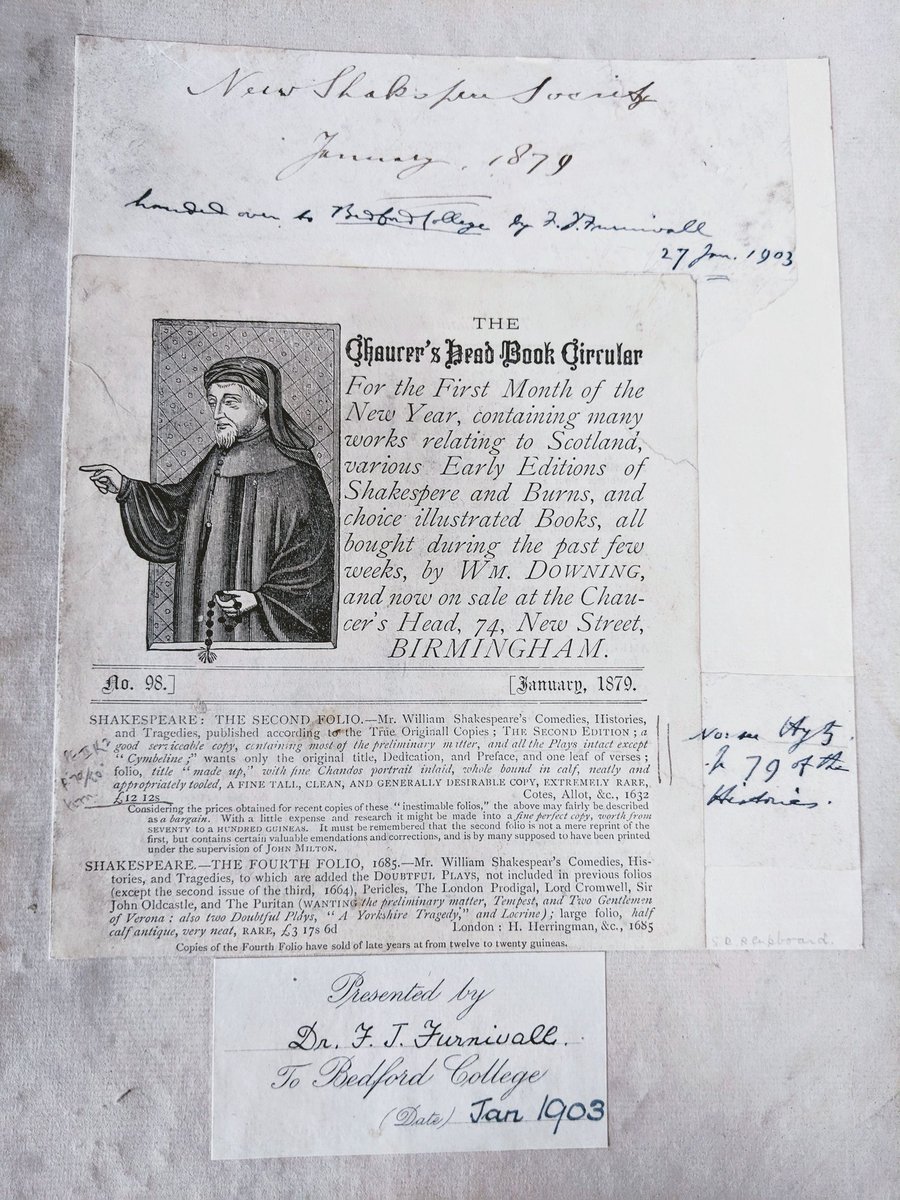 New Shakspere Society
January, 1879
handed over to Bedford College by F. J. Furnivall
27 Jan. 1903
THE
Chaucer's Head Book Circular
For the First Month of the
New Year, containing many
works relating to Scotland,
various Early Editions of
Shakespere and Burns, and
choice illustrated Books, all
bought during the past few
weeks, by WM. DOWNING,
and now on sale at the Chau-
cer's Head, 74, New Street,
BIRMINGHAM.
No. 98.] [January, 1879.
SHAKESPEARE: THE SECOND FOLIO.—Mr. William Shakespeare's Comedies, Histories,
and Tragedies, published according to the True Originall Copies; THE SECOND EDITION; a
good serviceable copy, containing most of the preliminary matter, and all the Plays intact except
"Cymbeline;" wants only the original title, Dedication, and Preface, and one leaf of verses;
folio, title "made up," with fine Chandos portrait inlaid, whole bound in calf, neatly and
appropriately tooled, A FINE TALL, CLEAN, AND GENERALLY DESIRABLE COPY, EXTREMELY RARE,
£12 12s Cotes, Allot, &c., 1632
Considering the prices obtained for recent copies of these "inestimable folios," the above may fairly be described
as a bargain. With a little expense and research it might be made into a fine perfect copy, worth from
SEVENTY to a HUNDRED GUINEAS. It must be remembered that the second folio is not a mere reprint of the
first, but contains certain valuable emendations and corrections, and is by many supposed to have been printed
under the supervision of JOHN MILTON.
SHAKESPEARE.—THE FOURTH FOLIO, 1685.—Mr. William Shakespear's Comedies, His-
tories, and Tragedies, to which are added the DOUBTFUL PLAYS, not included in previous folios
(except the second issue of the third, 1664), Pericles, The London Prodigal, Lord Cromwell, Sir
John Oldcastle, and The Puritan (WANTING the preliminary matter, Tempest, and Two Gentlemen
of Verona: also two Doubtful Plays, "A Yorkshire Tragedy," and Locrine); large folio, half
calf antique, very neat, RARE, £3 17s 6d London: H. Herringman, &c., 1685
Copies of the Fourth Folio have sold of late years at from twelve to twenty guineas.
p 79 of the
Histories.
Presented by
Dr. F. J. Furnivall.
To Bedford College
(Date) Jan 1903